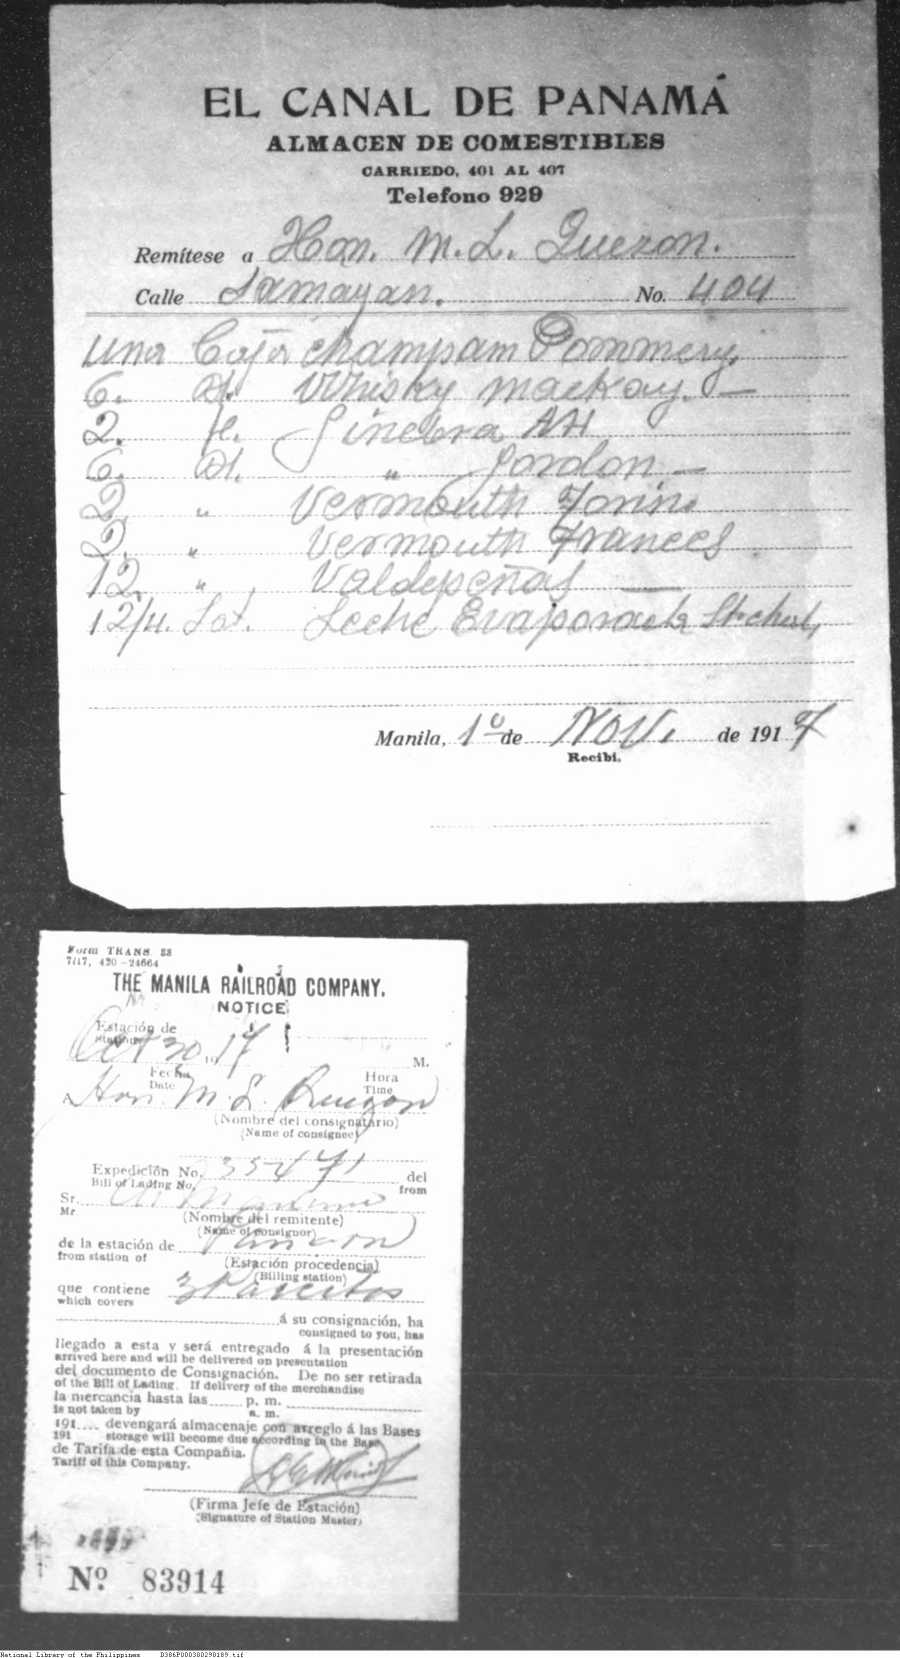 EL CANAL DE PANAMÁ
ALMACEN DE COMESTIBLES
CARRIEDO, 401 AL 407
Telefono 929
Remítese a Hon. M. L. Quezon.
Calle No. 404
Una Caja champam Pommery
6. Bt. Whisky Mackay. —
2. Ginebra AH
6. Bt. " Gordon —
2. " Vermouth Torino
2. " Vermouth Frances
12. " Valdepeñas —
12/4. Lat. Leche Evaporada
Manila, 1º de Nov. de 1917
Recibi.
Form TRANS 38
7/17, 420-24664
THE MANILA RAILROAD COMPANY.
NOTICE
Estación de
Station
Oct 30, 1917 M.
Fecha Hora
Date Time
A Hon. M. L. Quezon
(Nombre del consignatario)
(Name of consignee)
Expedición No. 35471 del
Bill of Lading No. from
Sr.
Mr
(Nombre del remitente)
(Name of consignor)
de la estación de
from station of
(Estación procedencia)
(Billing station)
que contiene 3
which covers
á su consignación, ha
consigned to you, has
llegado a esta y será entregado á la presentación
arrived here and will be delivered on presentation
del documento de Consignación. De no ser retirada
of the Bill of Lading. If delivery of the merchandise
la mercancia hasta las p. m.
is not taken by a. m.
191.... devengará almacenaje con arreglo á las Bases
191 storage will become due according to the Base
de Tarifa de esta Compañia.
Tariff of this Company.
(Firma Jefe de Estación)
(Signature of Station Master)
Nº 83914
National Library of the Philippines D386P000300298189.tif